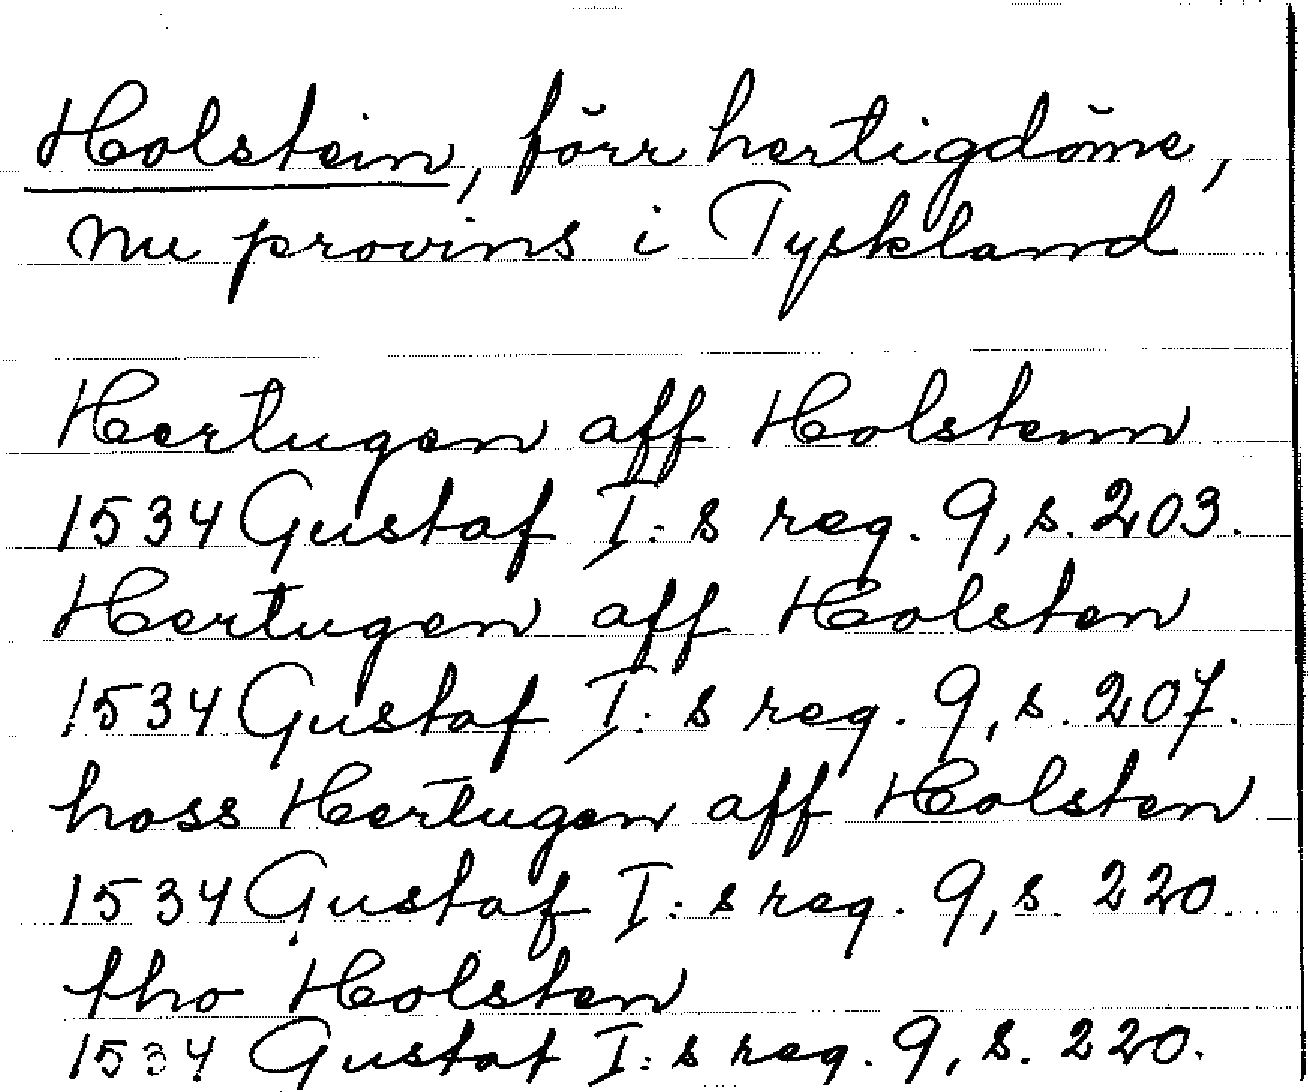 Holstein, förr hertigdöme,
nu provins i Tyskland
Hertugen aff Holstenn
1534 Gustaf I:s reg. 9, s. 203.
Hertugen aff Holsten
1534 Gustaf I:s reg. 9, s. 207.
hoss Hertugen aff Holsten
1534 Gustaf I:s reg. 9, s. 220.
tho Holsten
1534 Gustaf I:s reg. 9, s. 220.